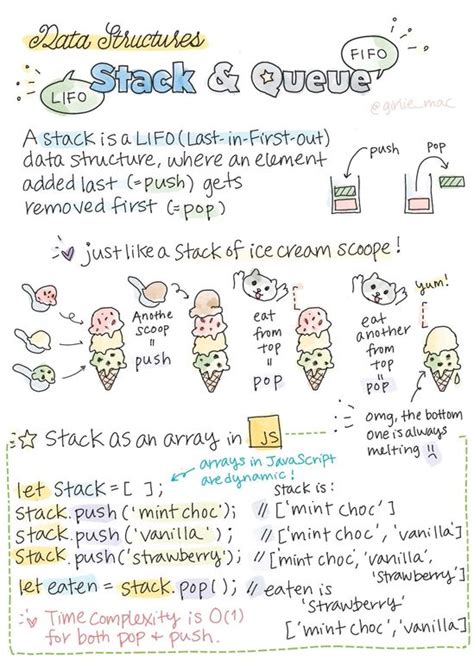 Data Structures
FIFO
Stack & Queue
LIFO
@girlie_mac
A stack is a LIFO (Last-in-First-out)
data structure, where an element
added last (=push) gets
removed first (=pop)
push
pop
just like a stack of ice cream scoope!
Anothe
scoop
=
push
eat
from
top
=
pop
eat
another
from
top
=
pop
yum!
omg, the bottom
one is always
melting!!
Stack as an array in JS
arrays in JavaScript
are dynamic!
let stack = [ ];
stack is:
stack.push('mint choc'); // ['mint choc']
stack.push('vanilla'); // ['mint choc', 'vanilla']
stack.push('strawberry'); // ['mint choc', 'vanilla',
'strawberry']
let eaten = stack.pop(); // eaten is
'strawberry'
['mint choc', 'vanilla']
Time complexity is O(1)
for both pop + push.